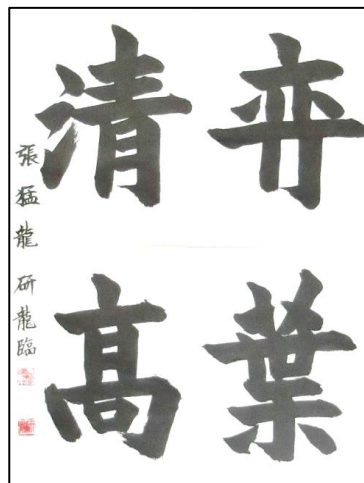 弈葉
清高
張猛龍 研龍臨